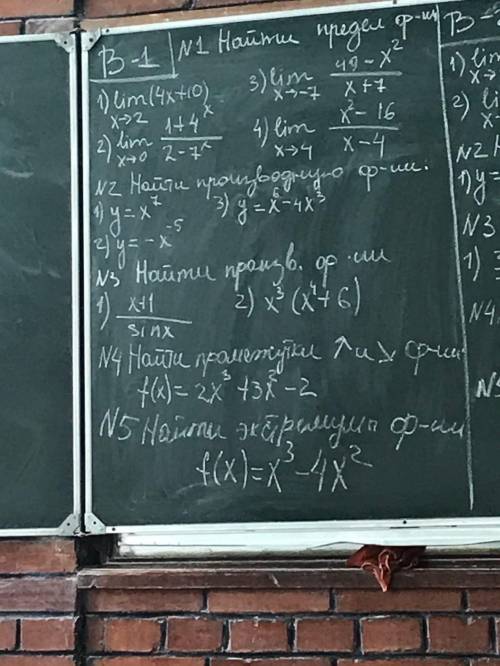 В-1 N1 Найти предел ф-ии
1) lim (4x+10) x→2
3) lim x→-7 (49-x²)/(x+7)
2) lim x→0 (1+4ˣ)/(2-7ˣ)
4) lim x→4 (x²-16)/(x-4)
N2 Найти производную ф-ии:
1) y=x⁷ 3) y=x⁶-4x³
2) y=-x⁻⁵
N3 Найти произв. ф-ии
1) (x+1)/(sinx) 2) x³(x⁴+6)
N4 Найти промежутки ↗ и ↘ ф-ии
f(x)=2x³+3x²-2
N5 Найти экстремумы ф-ии
f(x)=x³-4x²
В-
1) lim
x→
2) lim
x→
N2 На
1) y=
N3
1)
N4.
N